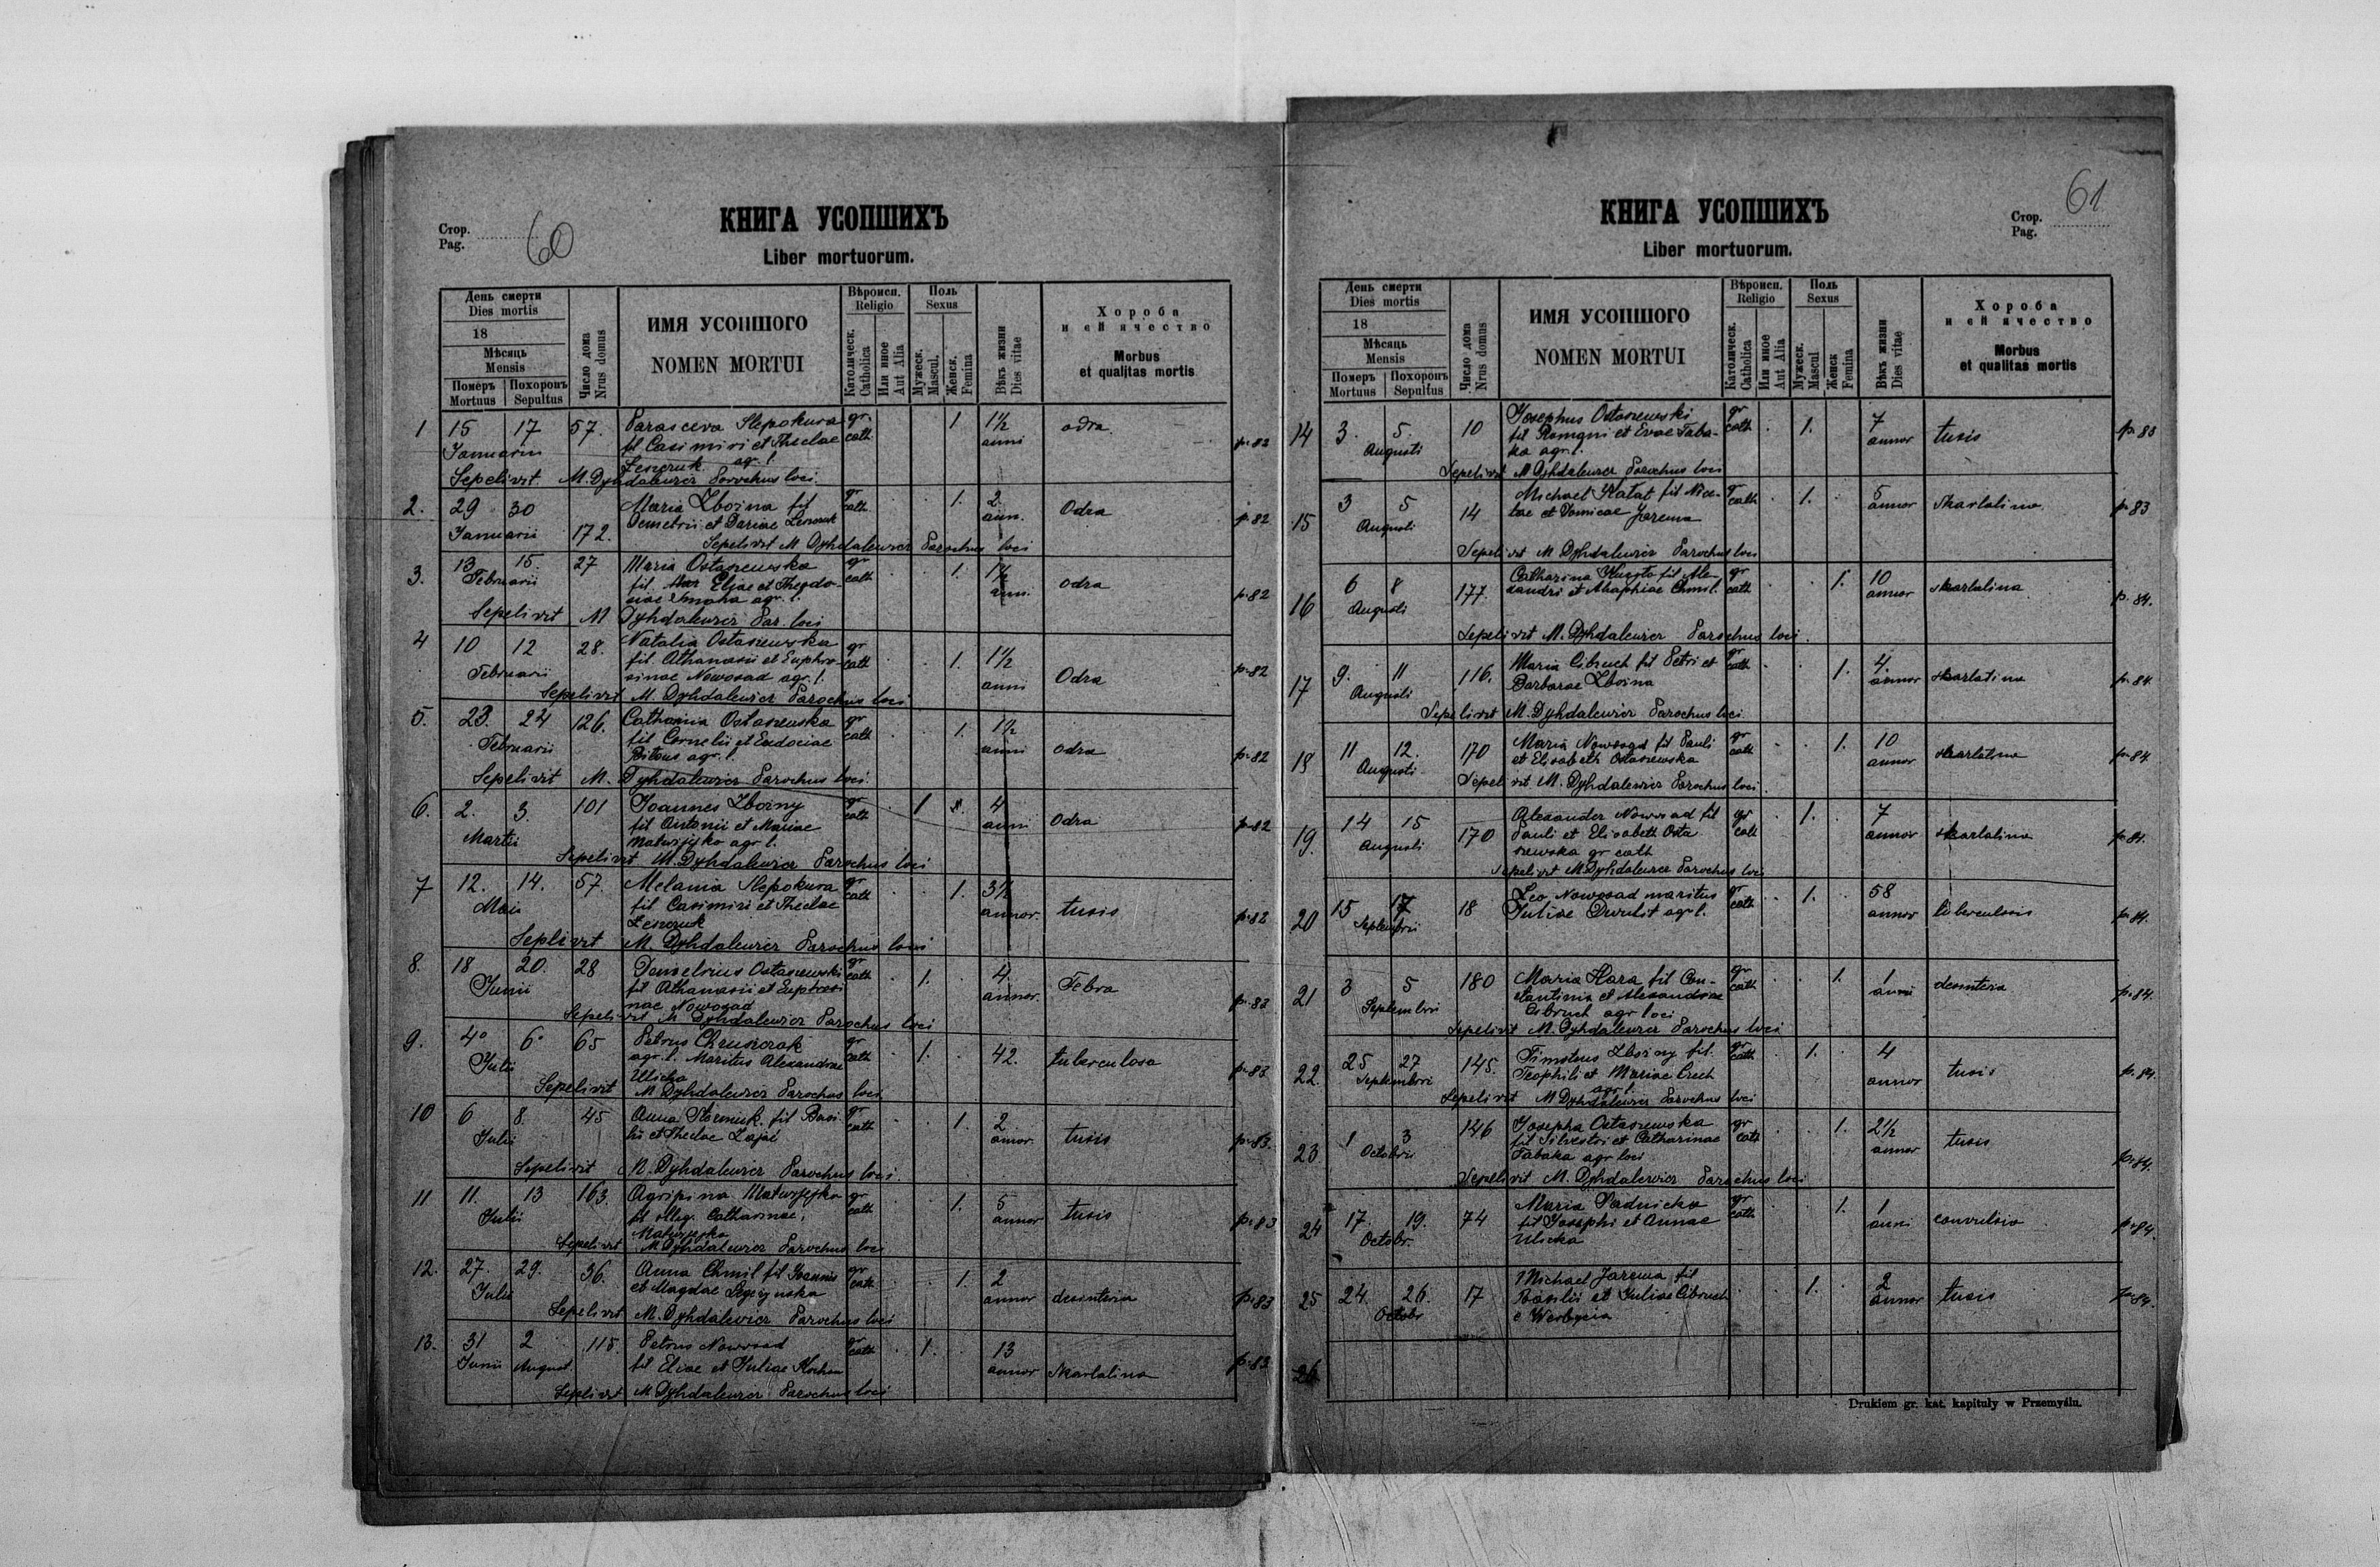 Стор.
Pag. 60
КНИГА УСОПШИХЪ
Liber mortuorum.
День смерти
Dies mortis
18
Мѣсяць
Mensis
Померъ
Mortuus
Похоронъ
Sepultus
Число дома
Nrus domus
ИМЯ УСОПШОГО
NOMEN MORTUI
Вѣроисп.
Religio
Католическ.
Catholica
Или иное
Aut Alia
Поль
Sexus
Мужеск.
Mascul.
Женск.
Femina
Вѣкъ жизни
Dies vitae
Хороба
и ей ячество
Morbus
et qualitas mortis
1 15 17 57. Parasceva Slepokura gr. 1 1½ odra
Januarii fil Casimiri et Theclae cath. anni p. 82
Leszczuk agr. l.
Sepelivit M. Dyhdalewicz Parochus loci.
2. 29 30 Maria Zboina fil gr 1. 2 Odra
Januarii 172. Demetrii et Dariae cath ann. p 82
Sepelivit M Dyhdalewicz Parochus loci
3. 13 15. 27 Maria Ostaszewska gr 1. 1½ odra
Februarii fil. Eliae et Theodo- cath anni p. 82
siae agr. l.
Sepelivit M Dyhdalewicz Par. loci
4 10 12 28. Natalia Ostaszewska gr 1. 1½ Odra
Februarii fil. Athanasii et Euphro- cath anni p. 82
sinae Nowosad agr. l.
Sepelivit M. Dyhdalewicz Parochus loci
5. 23. 24 126. Ostaszewska gr 1. 1½ odra
Februarii fil Cornelii et Eudociae cath anni p. 82
agr. l.
Sepelivit M. Dyhdalewicz Parochus loci
6. 2. 3. 101 Joannes Zboiny gr 1 4 Odra
Martii fil Antonii et Mariae cath anni p. 82
Matwijejko agr l.
Sepelivit M. Dyhdalewicz Parochus loci
7 12. 14. 57. Melania Slepokura gr 1. 3½ tusis
Maii fil Casimiri et Theclae cath annor. p. 82
Leszczuk
Seplivit M. Dyhdalewicz Parochus loci
8. 18 20. 28 Demetrius Ostaszewski gr 1. 4 Febra
Junii fil Athanasii et Euphrosi cath annor. p. 82
nae Nowosad
Sepelivit M Dyhdalewicz Parochus loci
9. 4 6 65 Petrus Chruszczak gr 1. 42. tuberculosa
Julii agr. l. Maritus Alexandrae cath p. 83
Ulicka
Sepelivit M Dyhdalewicz Parochus loci
10 6 8. 45 Anna fil Basi- gr 1. 2 tusis
Julii lii et Theclae Zając cath annor. p. 83.
Sepelivit M. Dyhdalewicz Parochus loci.
11 11. 13 163. Agripina Matwijejko gr 1. 5 tusis
Julii fil illeg. Catharinae, cath annor p. 83
Matwijejko
Sepelivit M Dyhdalewicz Parochus loci
12. 27. 29. 36. Anna Chmil fil Joannis gr 1. 2
Julii et Magdae cath annor desinteria p. 83
Sepelivit M. Dyhdalewicz Parochus loci
13. 31 2 115. Petrus Nowosad gr 1. 13
Junii August. fil Eliae et Juliae Kochan cath annor Skarlatina p. 83
Seplivit M Dyhdalewicz Parochus loci
Стор.
Pag. 61
КНИГА УСОПШИХЪ
Liber mortuorum.
День смерти
Dies mortis
18
Мѣсяць
Mensis
Померъ
Mortuus
Похоронъ
Sepultus
Число дома
Nrus domus
ИМЯ УСОПШОГО
NOMEN MORTUI
Вѣроисп.
Religio
Католическ.
Catholica
Или иное
Aut Alia
Поль
Sexus
Мужеск.
Mascul.
Женск
Femina
Вѣкъ жизни
Dies vitae
Хороба
и ей ячество
Morbus
et qualitas mortis
14 3. 5. 10 Josephus Ostaszewski gr 1. 7 tusis
Augusti fil Romani et Evae Taba- cath annor p. 83
ka agr. l.
Sepelivit M Dyhdalewicz Parochus loci
15 3 5 14 Michael fil Nice- gr 1. 5 Skarlatina
Augusti tae et Domicae Jarema cath annor p. 83
Sepelivit M Dyhdalewicz Parochus loci
16 6 8 177. Catharina fil Ale- gr 1. 10 skarlatina
Augusti xandri et Ahaphiae Chmil. cath annor p. 84.
Sepelivit M. Dyhdalewicz Parochus loci.
17 9. 11 116. Maria Cibruch fil Petri et gr 1. 4. skarlatina
Augusti Barbarae Zboina cath annor p. 84.
Sepelivit M. Dyhdalewicz Parochus loci
18 11 12. 170 Maria Nowosad fil Pauli gr 1. 10 skarlatina
Augusti et Elisabeth Ostaszewska cath annor p. 84
Sepelivit M. Dyhdalewicz Parochus loci.
19. 14 15 170 Alexander Nowosad fil gr 1. 7 skarlatina
Augusti Pauli et Elisabeth Osta cath annor p. 84.
szewska gr cath
Sepelivit M Dyhdalewicz Parochus loci
20 15 17 18 Leo Nowosad maritus gr 1. 58
Septembri Juliae agr l. cath annor tuberculosis p. 84.
21 3 5 180 Maria Hara fil Con- gr 1. 1 desinteria
Septembri stantinia et Alexandrae cath anni p. 84.
Cibruch agr loci
Sepelivit M. Dyhdalewicz Parochus loci
22. 25 27 145. Timoteus Zboiny fil. gr 1. 4 tusis
Septembri Teophili et Mariae cath annor p. 84.
agr l.
Sepelivit M Dyhdalewicz Parochus loci
23. 1 3 146 Josepha Ostaszewska gr 1. 2½ tusis
Octobris fil Silvestri et Catharinae cath annor
Tabaka agr loci p. 84.
Sepelivit M. Dyhdalewicz Parochus loci
24 17. 19. 74 Maria gr 1. 1 convulsio
Octobr. fil Josephi et Annae cath anni p. 84.
Ulicka
25 24. 26. 17 Michael Jarema fil 1. 2 tusis
Octobr Basilii et Juliae Cibruch annor p. 84.
26
Drukiem gr. kat. kapituły w Przemyślu.